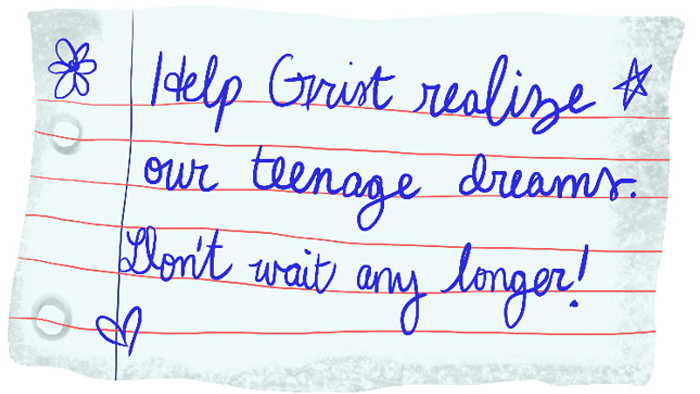 Help Grist realize
our teenage dreams.
Don't wait any longer!